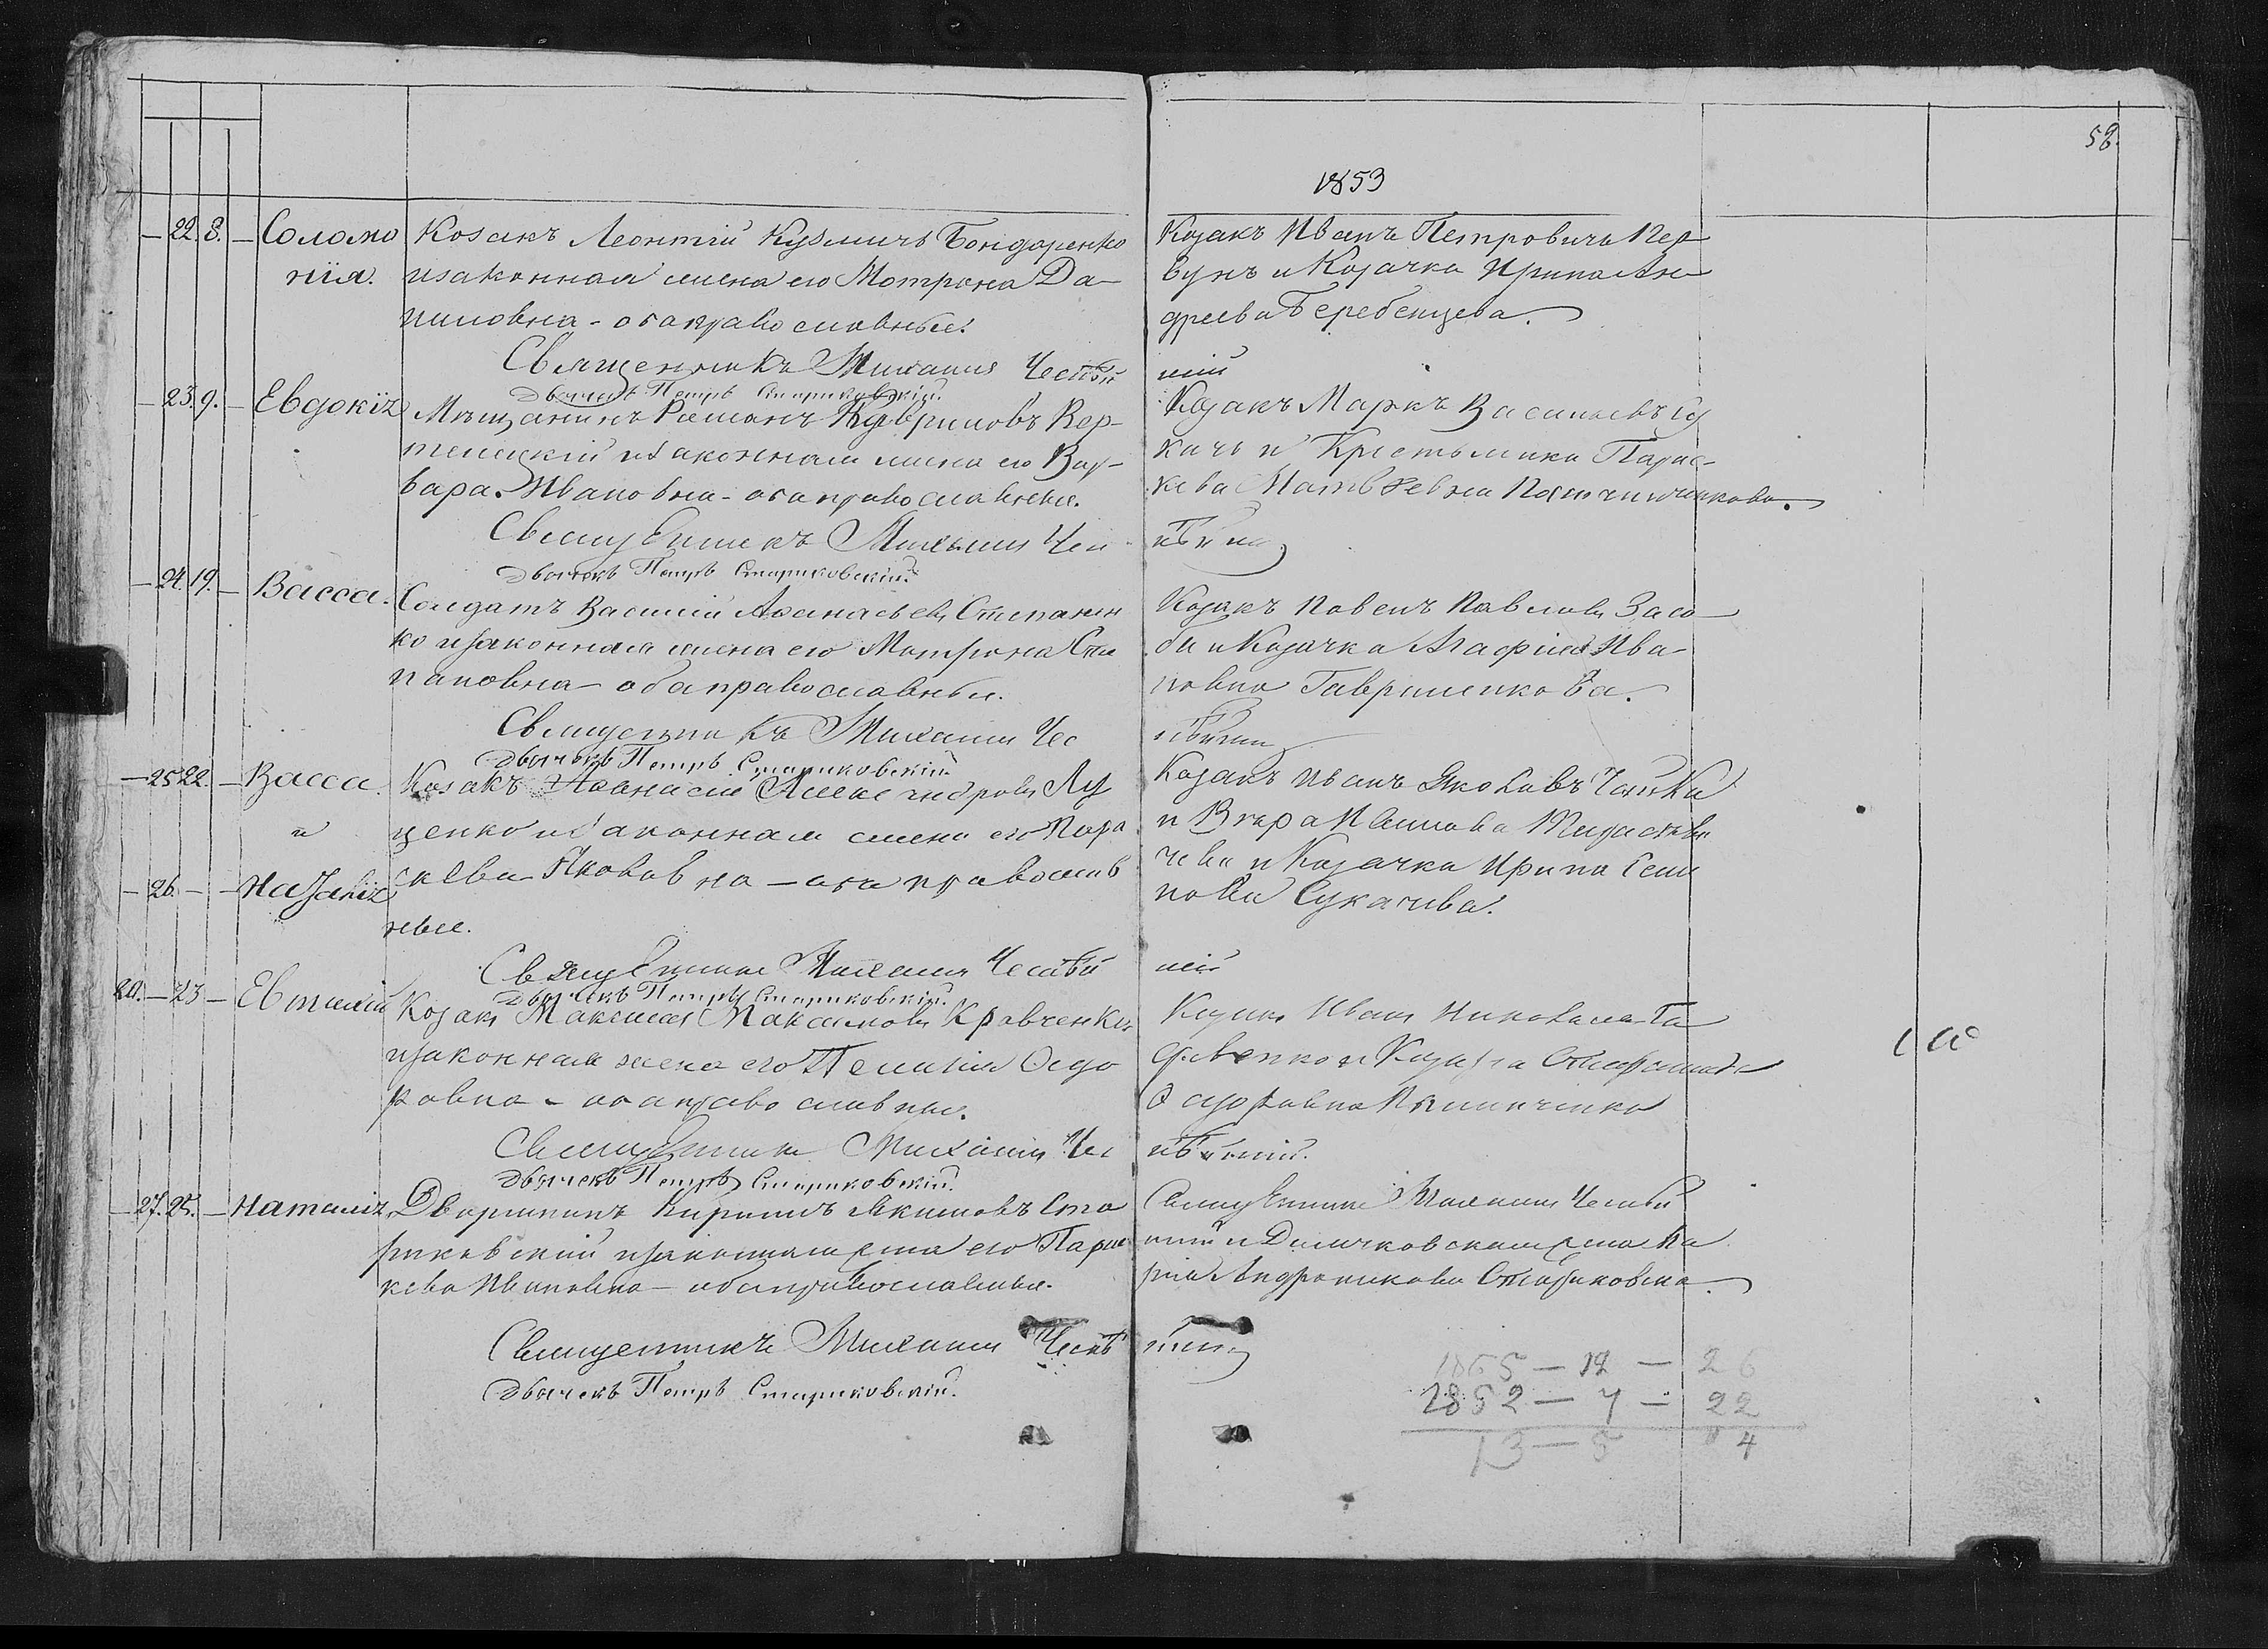 58.
1853
— 22. 8. — Соломо
нія.
Козакъ Леонтій Кузмичъ Бондаренко
изаконная жена его Мотрона Да-
ниловна - оба православные.
Священникъ Михаилъ Честнѣй
Дьячекъ Петръ Стариковскій.
Козакъ Иванъ Петровичъ Пер
вунъ и Козачка Ирина Ан
дреева Теребенцева.
шій
— 23. 9. — Евдокія
Мѣщанинъ Романъ Вер-
телецкій изаконная жена его Вар-
вара Ивановна - оба православные.
Священникъ Михаилъ Чест
Дьячекъ Петръ Стариковскій.
Козакъ Маркъ Васильевъ Су
качъ и Крестьянка Парас-
кева Матвѣевна
нѣйшій
— 24. 19. — Васса.
Солдатъ Василій Аѳанасьевъ Степанен
ко изаконная жена его Мотрона Сте
пановна - оба православные.
Священникъ Михаилъ Чес
Дьячекъ Петръ Стариковскій.
Козакъ Павелъ Павловъ Засо
ба и Козачка Агафія Ива-
новна Гавриленкова.
тнѣйшій
— 25 22. — Васса
и
— 26. — — Наталія
Козакъ Аѳанасій Александровъ Лу
ценко изаконная жена его Пара
скева Яковлевна — оба православ
ные.
Священникъ Михаилъ Честнѣй
Дьячекъ Петръ Стариковскій.
Козакъ Иванъ Яковлевъ Чайка
и Вѣра
чева и Козачка Ирина Семе
нова Сукачева.
шій
20. — 23 — Евтихій
Козакъ Максимъ Максимовъ Кравченко
изаконная жена его Пелагія Ѳедо
ровна - оба православные.
Священникъ Михаилъ Чест
Дьячекъ Петръ Стариковскій.
Козакъ Иванъ Николаевъ
и Козачка
Ѳедоровна
нѣйшій.
— 27. 25. — Наталія
Дворянинъ Кирилъ Акимовъ Ста
риковскій изаконная жена его Парас
кева Ивановна - оба православные.
Священникъ Михаилъ Честнѣ
Дьячекъ Петръ Стариковскій.
Священникъ Михаилъ Честнѣй
шій и Дьячковская жена Ма
рія Андроникова Стариковска.
йшій
1865 — 12 — 26
1852 — 7 — 22
13 — 5 4